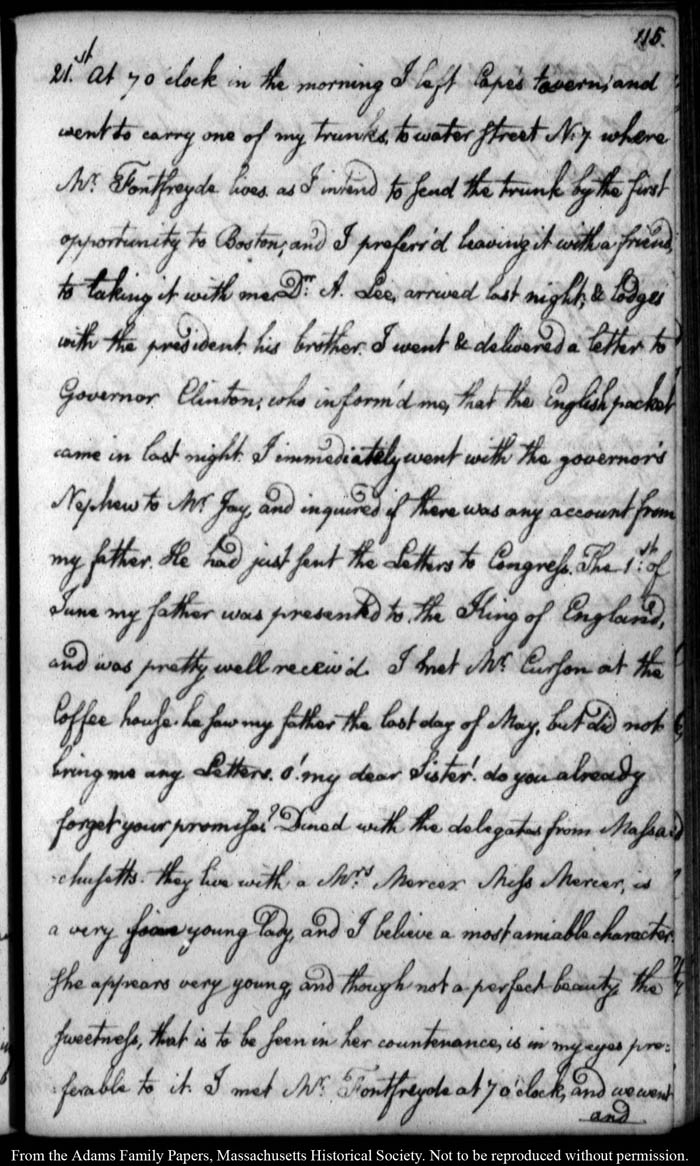 115.
21.st At 7 o'clock in the morning I left Cape's tavern; and
went to carry one of my trunks, to water street N:7 where
Mr. Fontfreyde lives. as I intend to send the trunk by the first
opportunity to Boston; and I preferr'd leaving it with a friend,
to taking it with me. Dr. A. Lee, arrived last night, & lodges
with the president. his brother. I went & delivered a letter to
Governor Clinton; who inform'd me, that the English packet
came in last night. I immediately went with the governor's
Nephew to Mr Jay, and inquired if there was any account from
my father. He had just sent the Letters to Congress. The 1.st of
June my father was presented to, the King of England,
and was pretty well receiv'd. I met Mr. Curson at the
Coffee house. he saw my father the last day of May, but did not
bring me any Letters. O! my dear Sister! do you already
forget your promises? Dined with the delegates from Massa
-chusetts. they live with a Mrs Mercer. Miss Mercer, is
a very young lady, and I believe a most amiable character.
She appears very young, and though not a perfect beauty, the
sweetness, that is to be seen in her countenance, is in my eyes pre:
:ferable to it. I met Mr. Fontfreyde at 7 o'clock, and we went
and
From the Adams Family Papers, Massachusetts Historical Society. Not to be reproduced without permission.